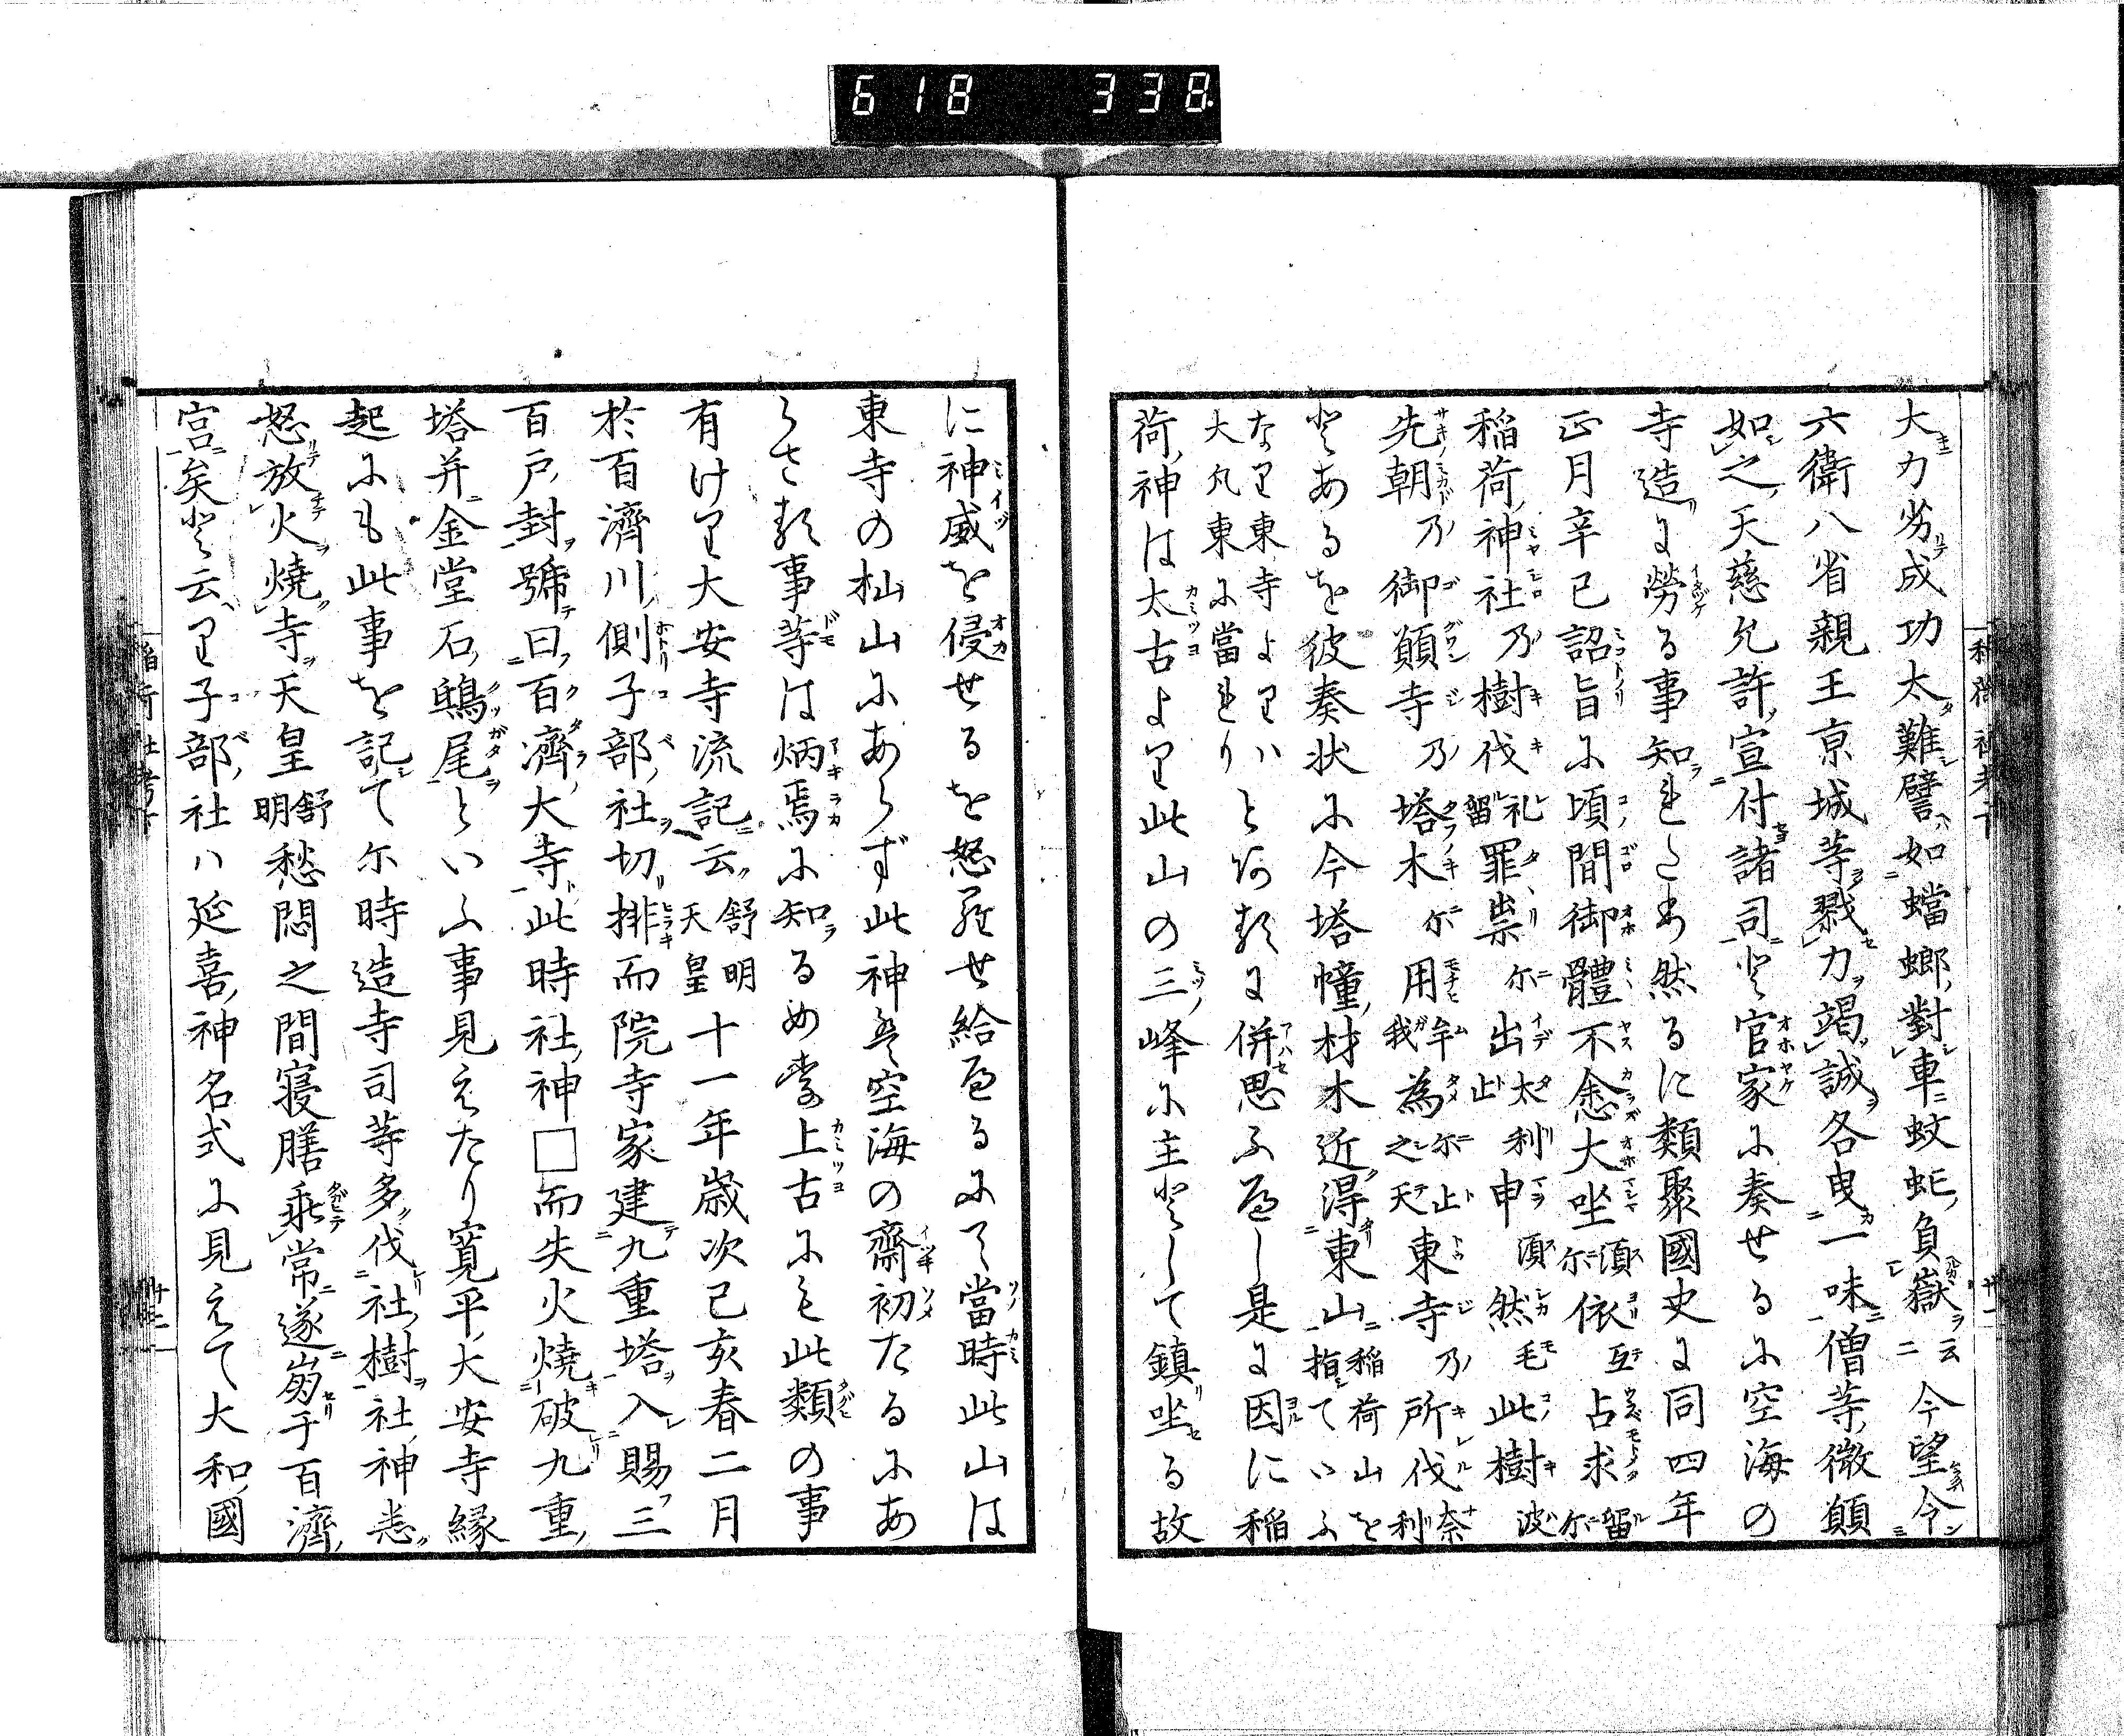 618 338
大力劣成功太難譬如蟷螂對車蚊虻負嶽云二今望令
六衛八省親王京城等戮力竭誠各曳一味僧等微願
如之天慈允許宣付諸司と官家に奏せるに空海の
寺造に勞る事知然るに類聚國史に同四年
正月辛巳詔旨に頃間御體不悆大坐須尓依弖占求留尓
稲荷神社乃樹伐礼留罪祟尓出太止利申須然毛此樹波
先朝乃御願寺乃塔木尓用牟我為尓止之天東寺乃所伐奈利
とあるを彼奏状に今塔幢材木近得東山稲荷山を指ていふ
なり東寺よりハ大凡東に當れりとあるに併思ふべし是に因に稲
荷神は太古より此山の三峰に主として鎮坐る故
に神威を侵せるを怒らせ給へるにて當時此山は
東寺の杣山にあらず此神も空海の齋初たるにあ
らざる事等は炳焉に知るめり上古にも此類の事
有けり大安寺流記云舒明天皇十一年歳次己亥春二月
於百濟川側子部社切排而院寺家建九重塔入賜三
百戸封號曰百濟大寺此時社神□而失火燒破九重
塔并金堂石鴟尾といふ事見えたり寛平大安寺縁
起にも此事を記て尓時造寺司等多伐社樹社神恚
怒放火燒寺天皇舒明愁悶之間寝膳乖常遂崩于百濟
宮矣と云り子部社ハ延喜神名式に見えて大和國
稲荷社考下